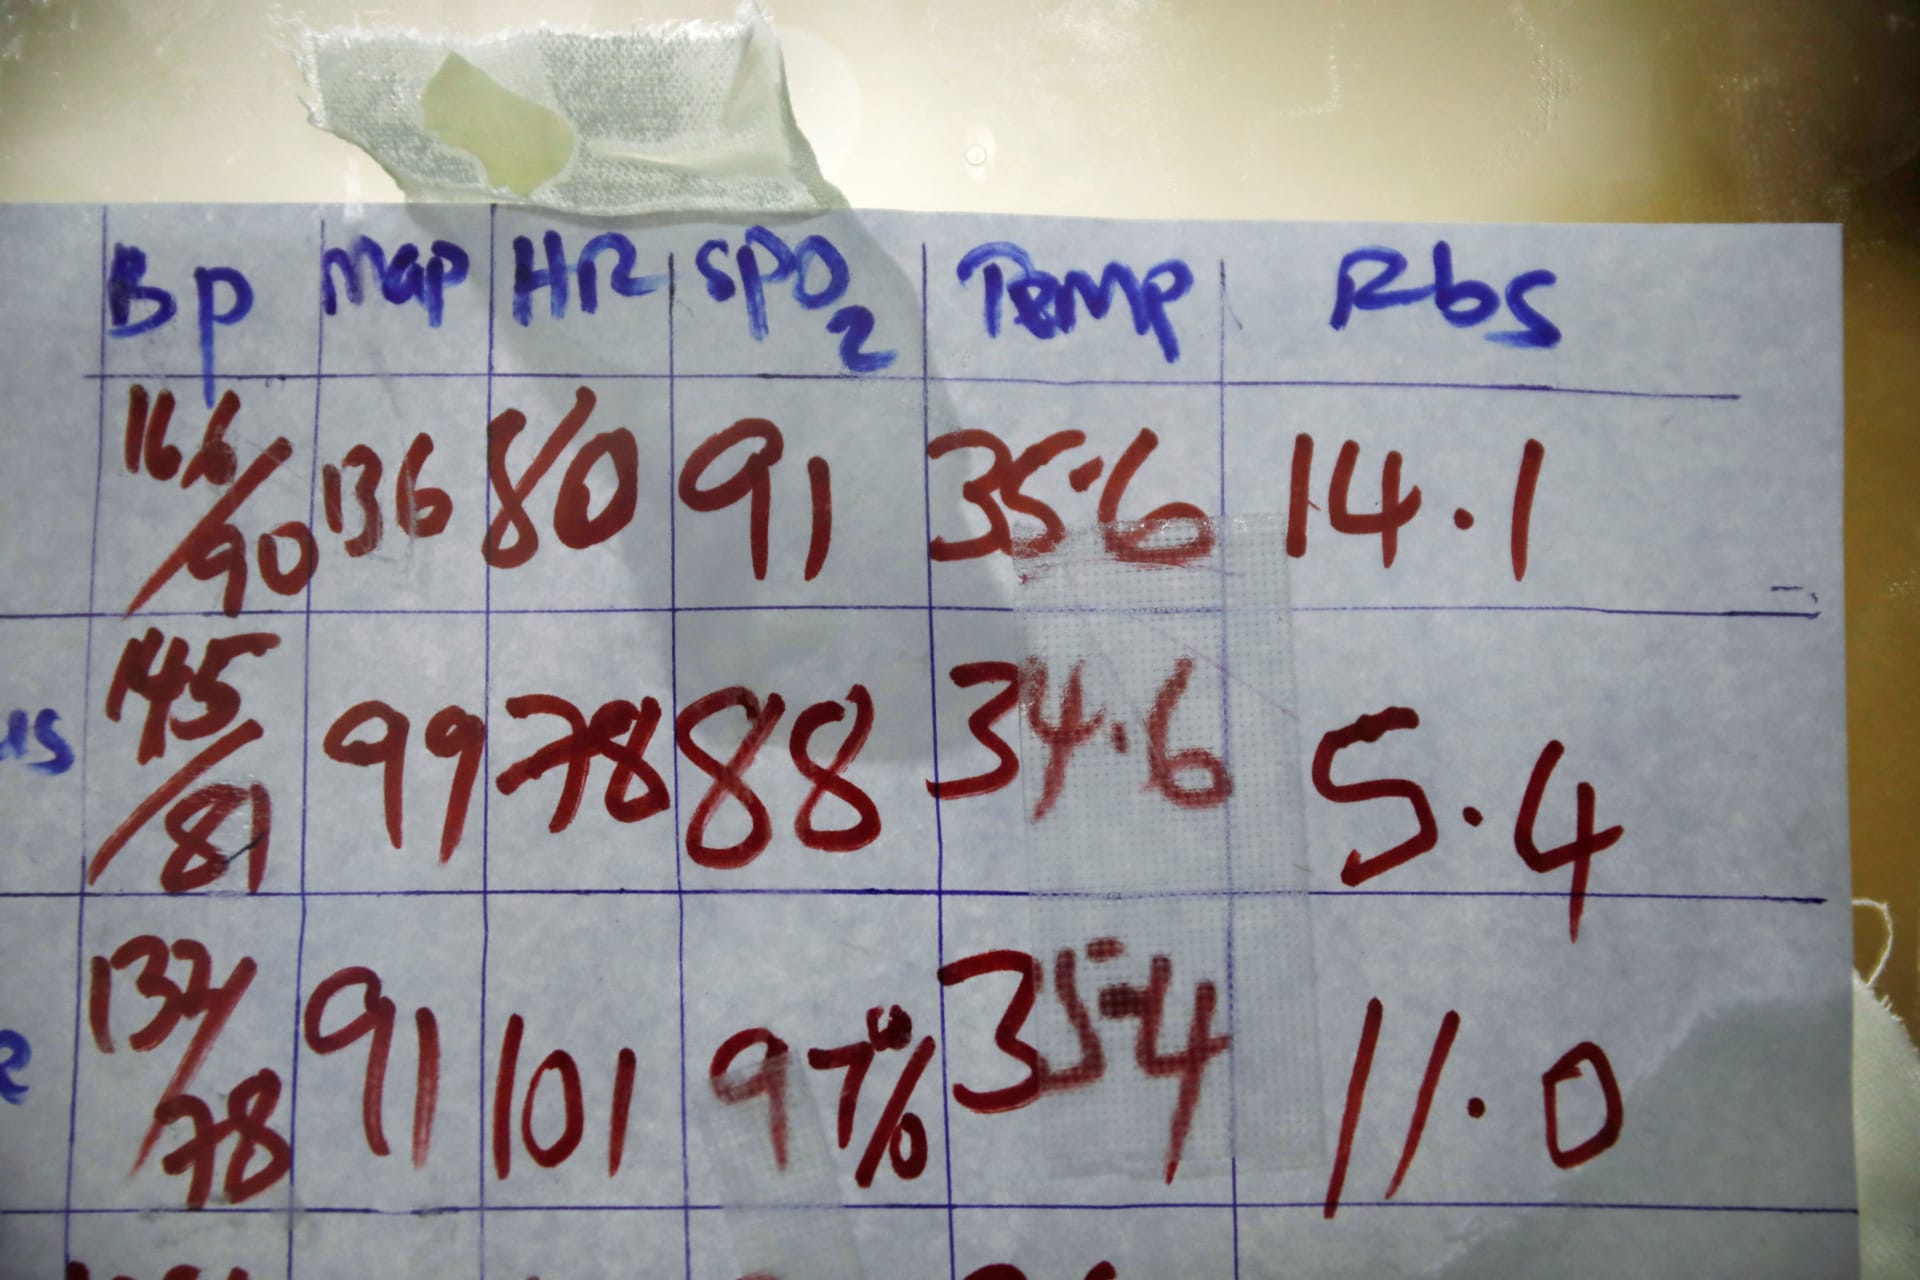 Bp Map HR SPO2 Temp Rbs
166/90 136 80 91 35.6 14.1
145/81 99 78 88 34.6 5.4
132/78 91 101 97% 35.4 11.0